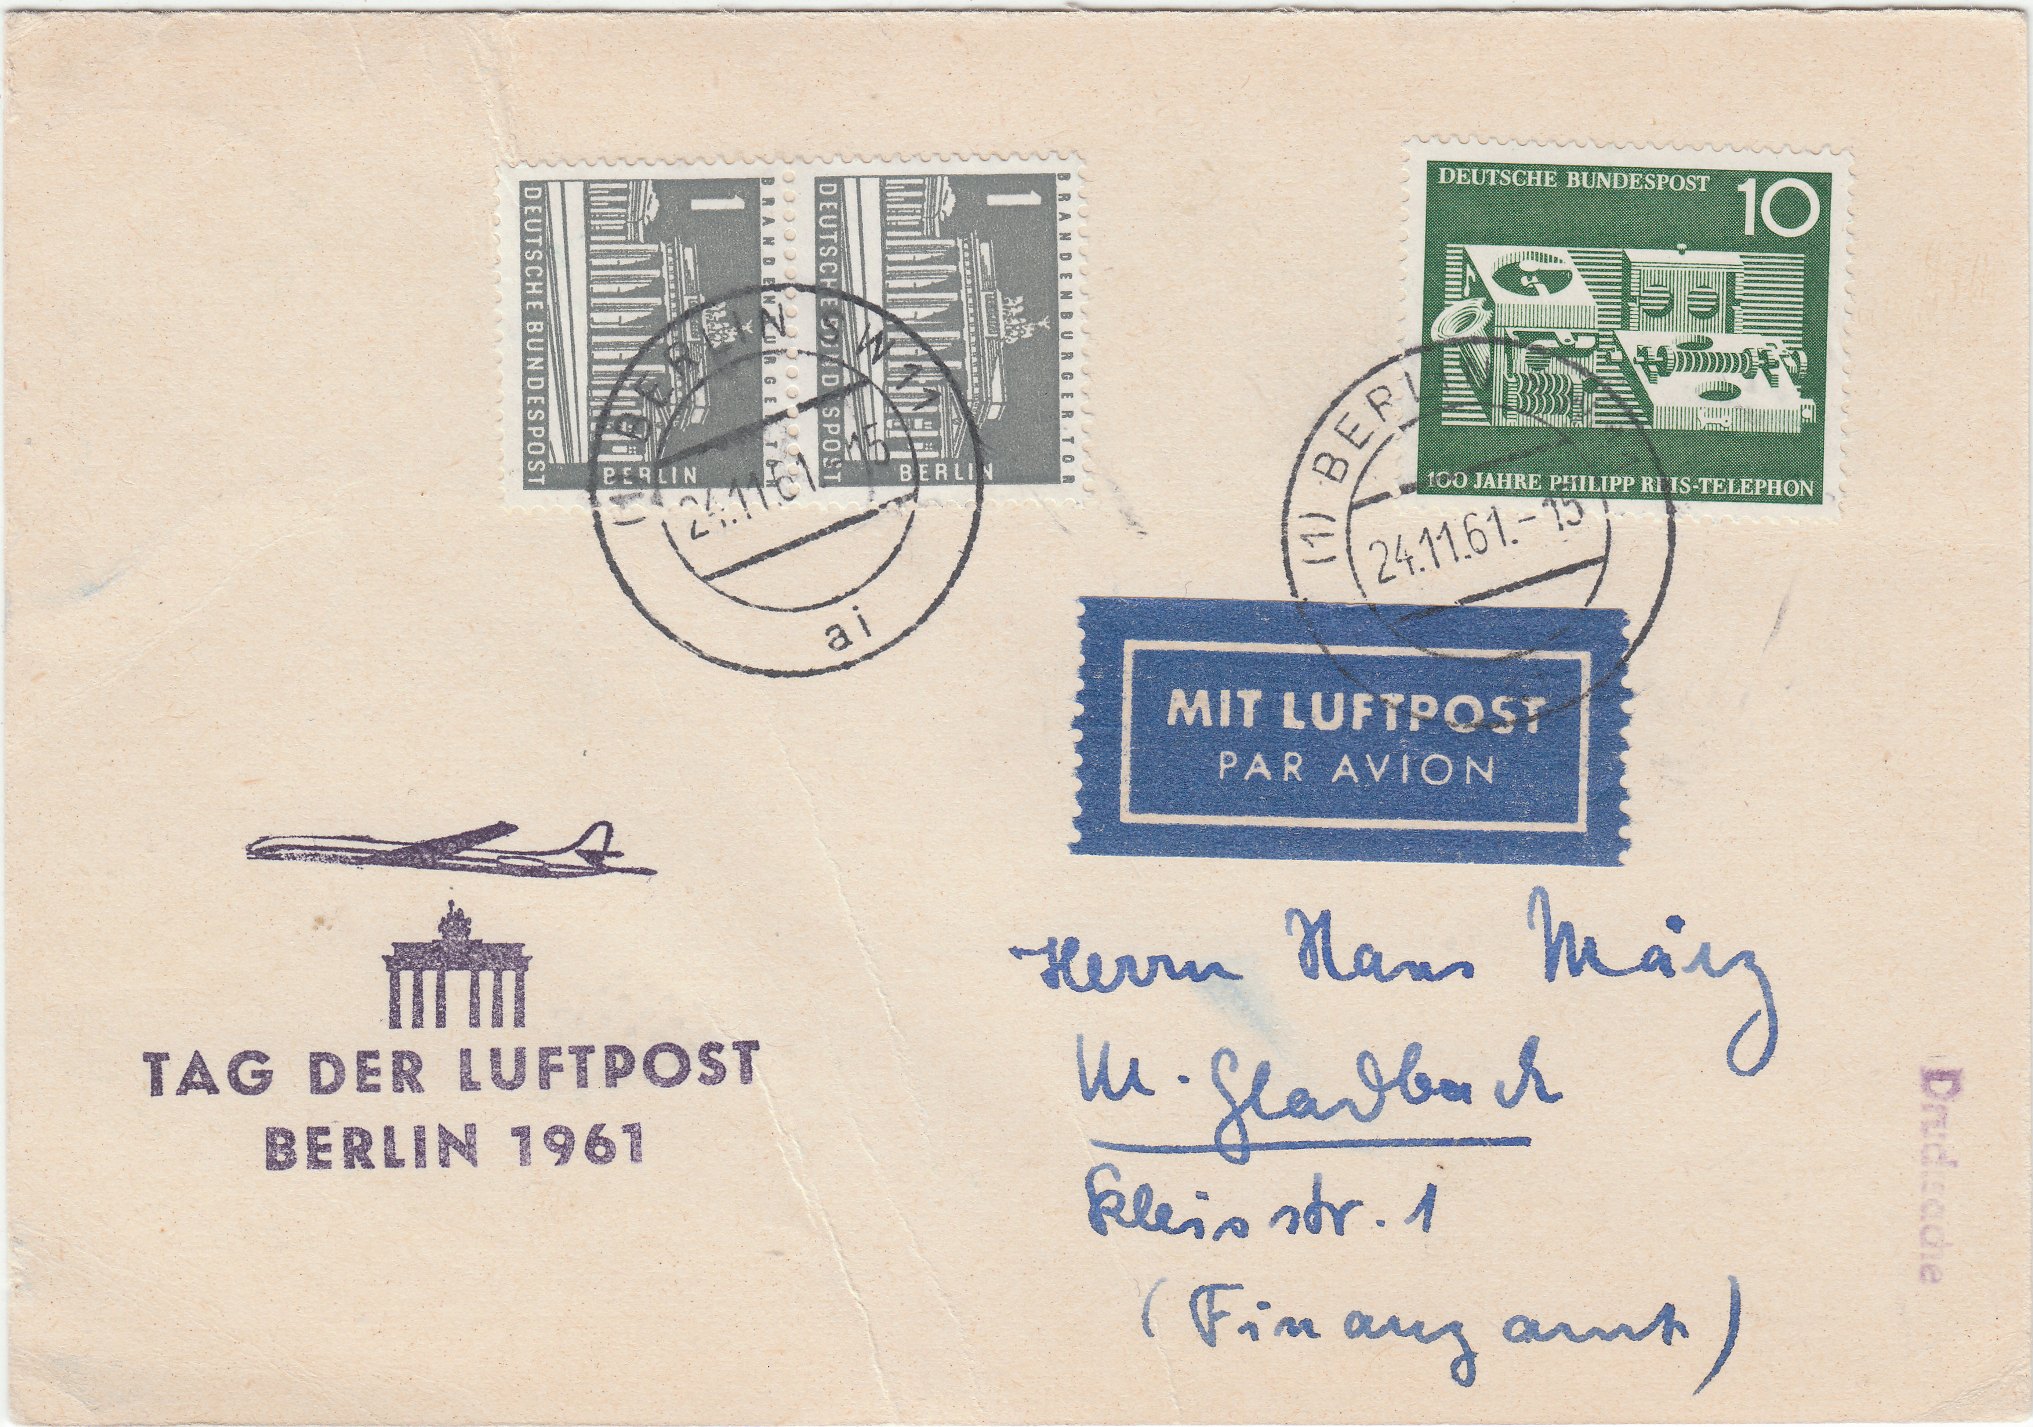 BRANDENBURGER TOR
1
DEUTSCHE BUNDESPOST
BERLIN
BRANDENBURGER TOR
1
DEUTSCHE BUNDESPOST
BERLIN
DEUTSCHE BUNDESPOST 10
100 JAHRE PHILIPP REIS-TELEPHON
(1) BERLIN SW 11
24.11.61.-15
ai
(1) BERLIN
24.11.61.-15
MIT LUFTPOST
PAR AVION
TAG DER LUFTPOST
BERLIN 1961
Herrn Hans März
M. Gladbach
Kleiststr. 1
(Finanzamt)
Drucksache